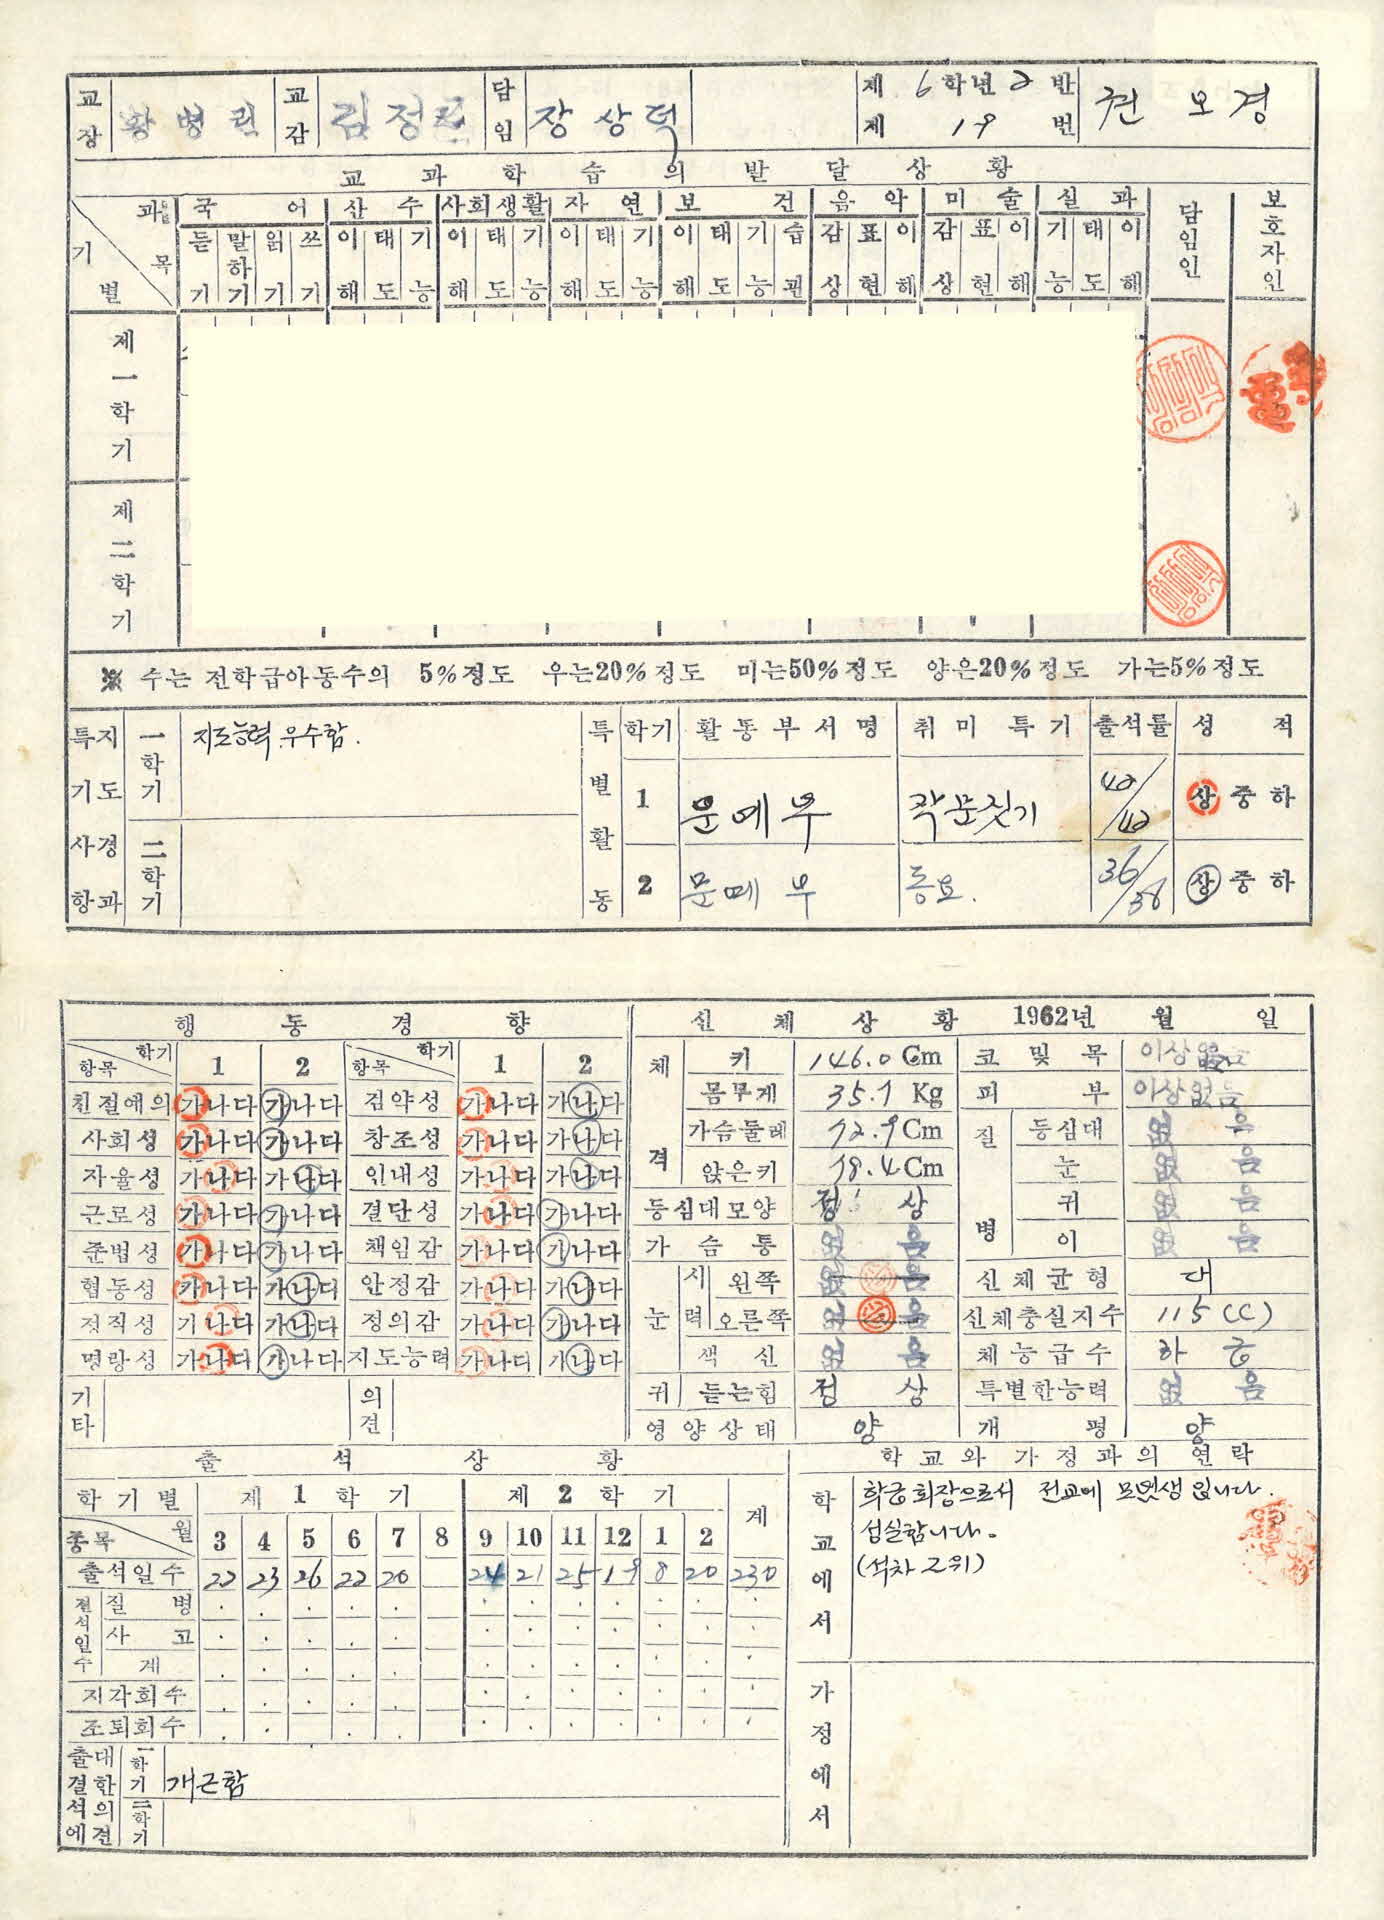 교장 황병권 교감 김정 담임 장상덕 제 6 학년 2 반 제 19 번 권오경
교과학습의 발달상황
과목 기별 국어 산수 사회생활 자연 보건 음악 미술 실과 담임인 보호자인
듣기 말하기 읽기 쓰기 이해 태도 기능 이해 태도 기능 이해 태도 기능 이해 태도 기능 습관 감상 표현 이해 감상 표현 이해 기능 태도 이해
제一학기
제二학기
※ 수는 전학급아동수의 5%정도 우는20%정도 미는50%정도 양은20%정도 가는5%정도
특기사항과 지도경과 一학기 지도능력 우수함.
二학기
특별활동 학기 활동부서명 취미특기 출석률 성적
1 문예부 작문짓기 42/42 상중하
2 문예부 동요. 36/36 상중하
행동경향
항목 학기 1 2 항목 학기 1 2
친절예의 가나다 가나다 검약성 가나다 가나다
사회성 가나다 가나다 창조성 가나다 가나다
자율성 가나다 가나다 인내성 가나다 가나다
근로성 가나다 가나다 결단성 가나다 가나다
준법성 가나다 가나다 책임감 가나다 가나다
협동성 가나다 가나다 안정감 가나다 가나다
정직성 가나다 가나다 정의감 가나다 가나다
명랑성 가나다 가나다 지도능력 가나다 가나다
기타 의견
신체상황 1962년 월 일
체격 키 146.0 Cm 코및목 이상없음
몸무게 35.1 Kg 피부 이상없음
가슴둘레 72.9 Cm 질병 등심대 없음
앉은키 78.4 Cm 눈 없음
등심대모양 정상 귀 없음
가슴통 없음 이 없음
눈 시력 왼쪽 없음 신체균형 대
오른쪽 없음 신체충실지수 115 (C)
색신 없음 체능급수 하급
귀 듣는힘 정상 특별한능력 없음
영양상태 양 개평 양
출석상황
학기별 제1학기 제2학기 계
종목 월 3 4 5 6 7 8 9 10 11 12 1 2
출석일수 22 23 26 22 20 24 21 25 19 8 20 230
결석일수 질병
사고
계
지각회수
조퇴회수
출결석에 대한의견 一학기 개근함
二학기
학교와 가정과의 연락
학교에서 학급회장으로서 전교에 모범생입니다.
성실합니다.
(석차 2위)
가정에서